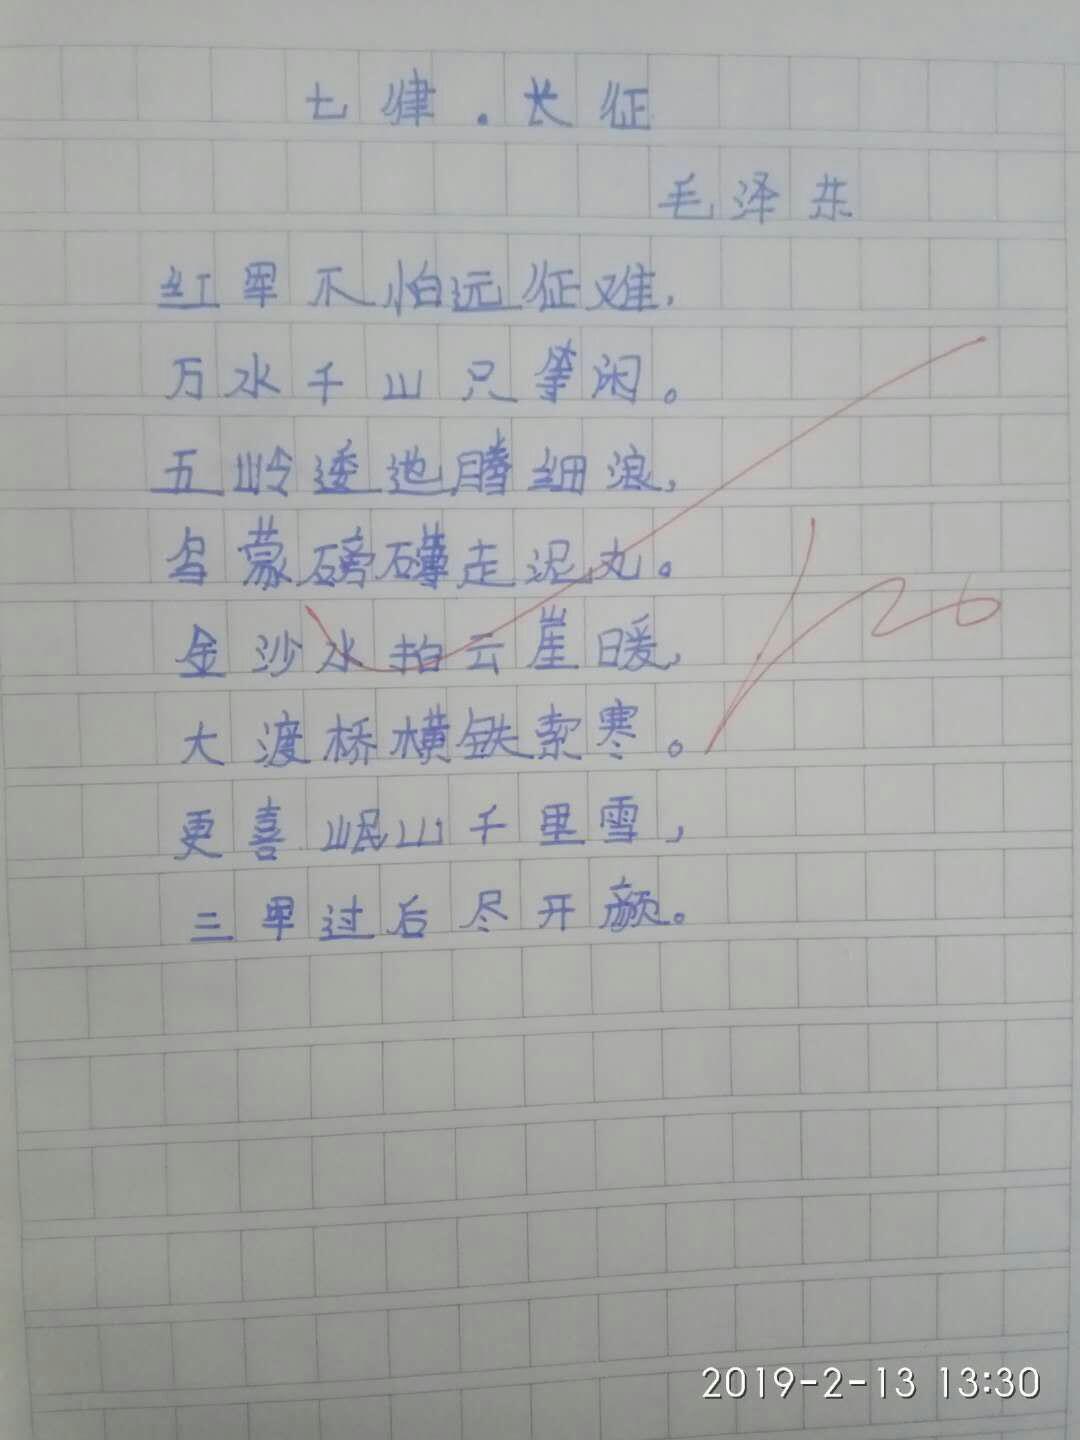 七律.长征
毛泽东
红军不怕远征难,
万水千山只等闲。
五岭逶迤腾细浪,
乌蒙磅礴走泥丸。
金沙水拍云崖暖,
大渡桥横铁索寒。
更喜岷山千里雪,
三军过后尽开颜。
2019-2-13 13:30